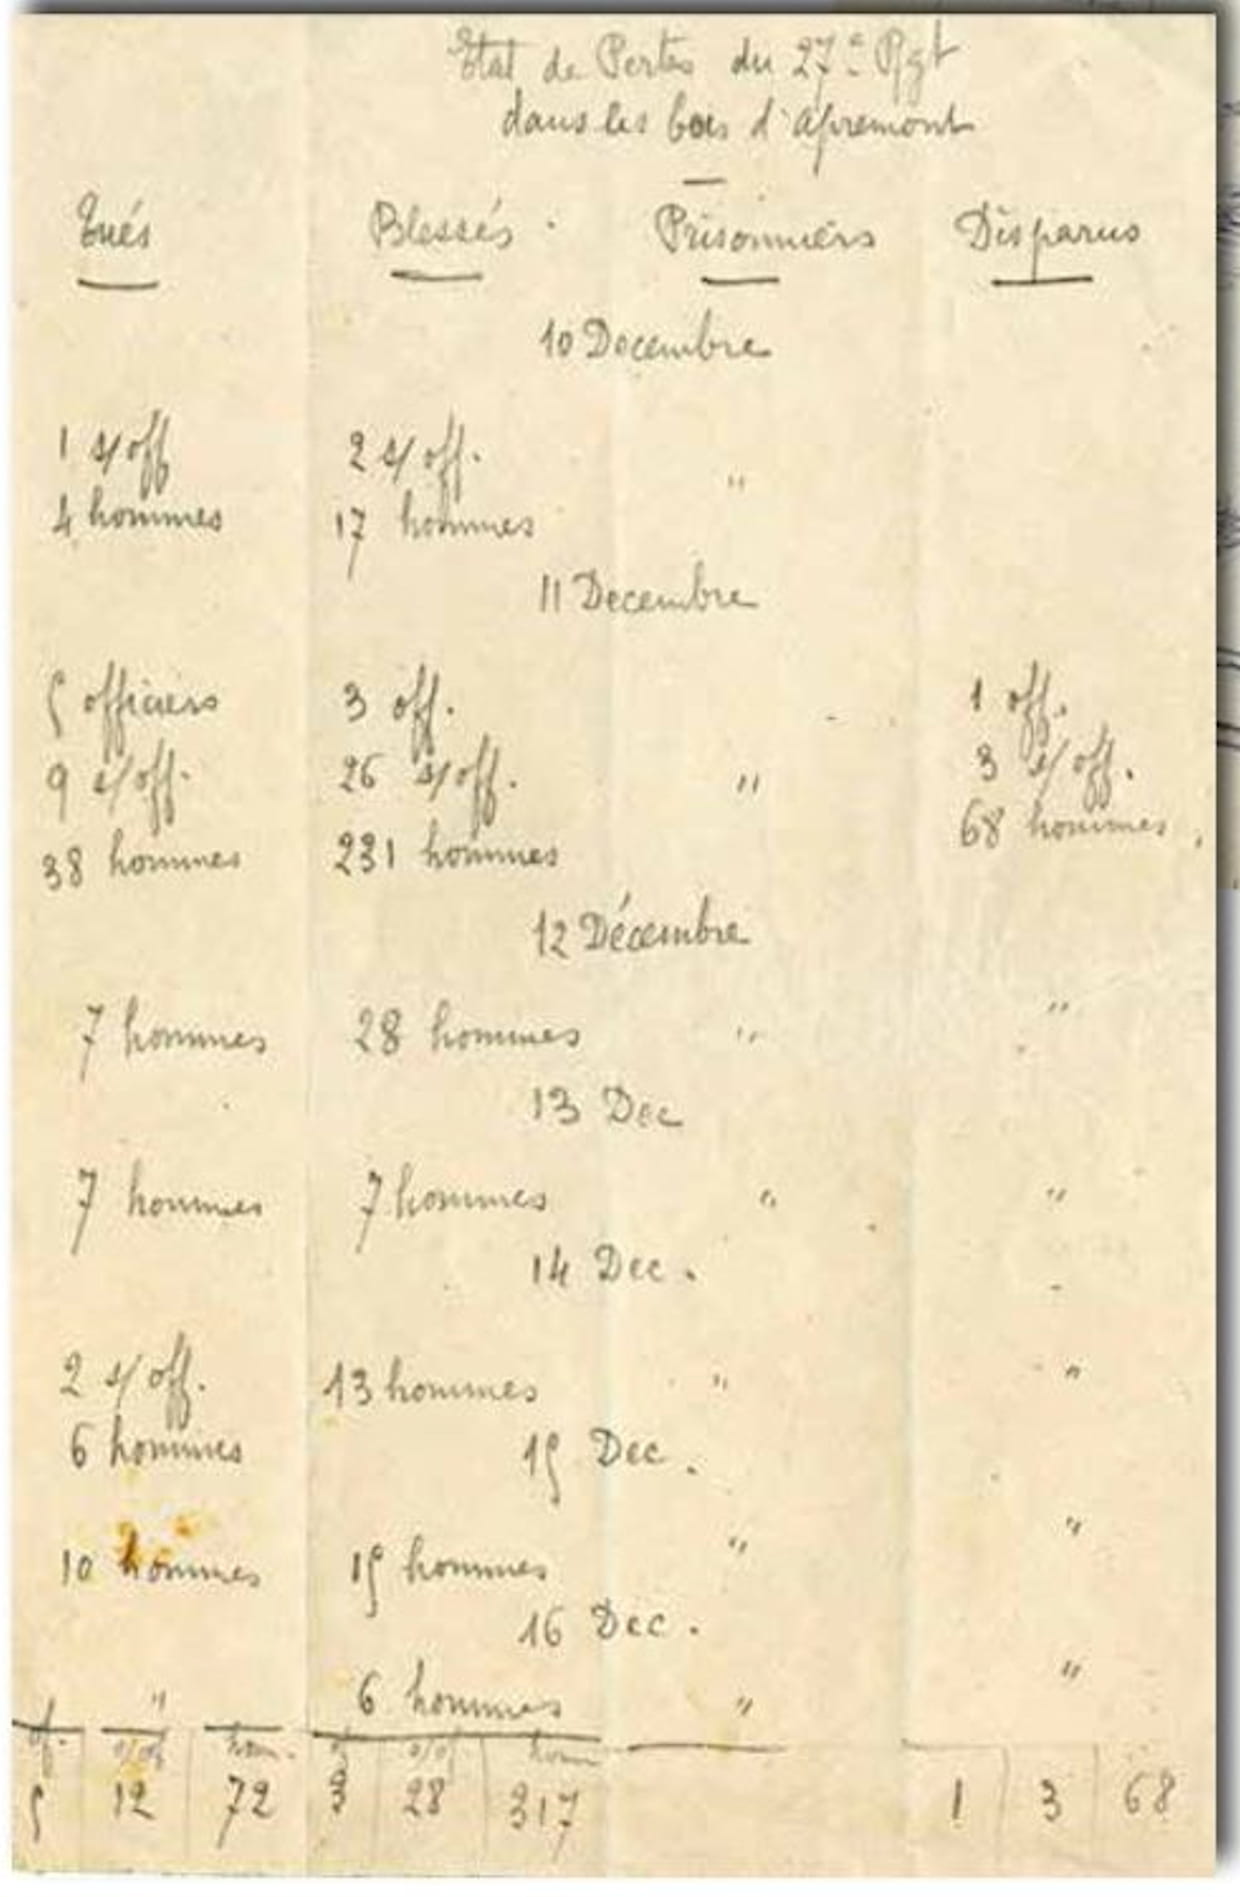 Etat de Pertes du 27e Rgt
dans les bois d'Apremont
Tués Blessés Prisonniers Disparus
10 Decembre
1 s/off 2 s/off. "
4 hommes 17 hommes
11 Decembre
5 officiers 3 off. 1 off.
9 s/off. 26 s/off. " 3 s/off.
38 hommes 231 hommes 68 hommes
12 Décembre
7 hommes 28 hommes " "
13 Dec
7 hommes 7 hommes " "
14 Dec.
2 s/off. 13 hommes " "
6 hommes
15 Dec.
10 hommes 15 hommes " "
16 Dec.
" 6 hommes " "
of. s/off hom. s/of hom
5 12 72 3 28 317 1 3 68